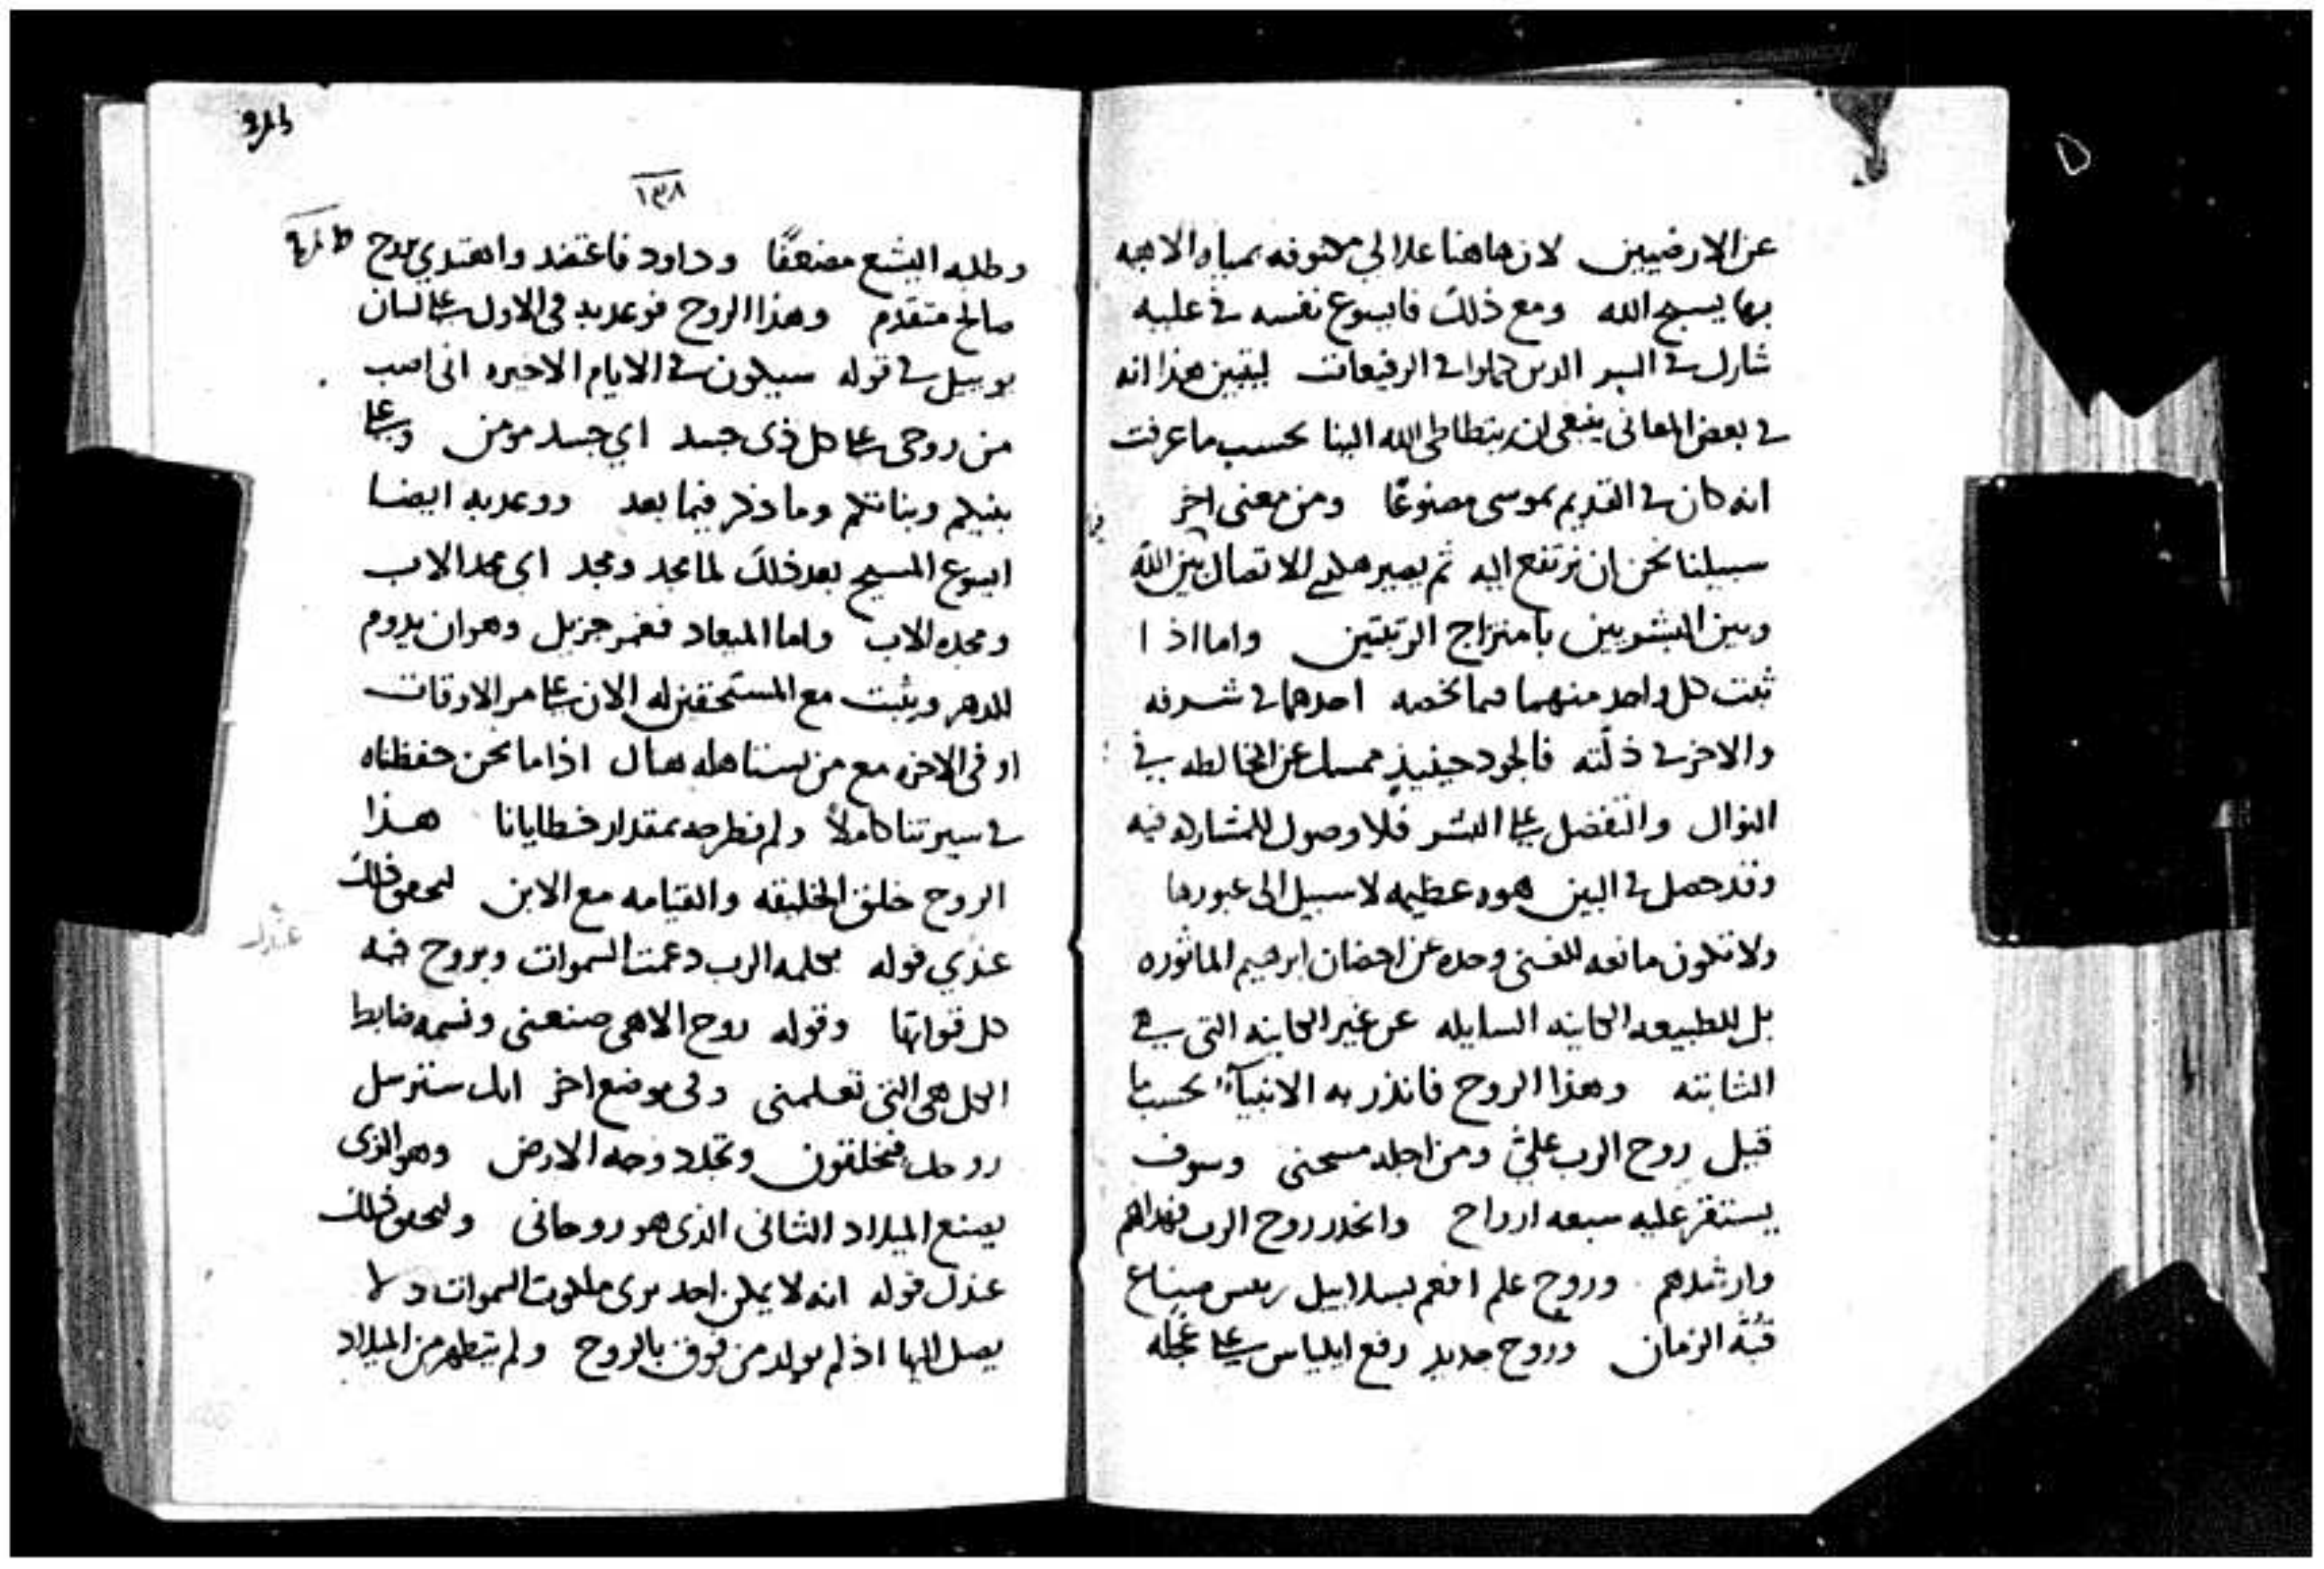 عن الارضيين لان هاهنا علالي مسقوفه بمياه الاهيه
بها يسبح الله ومع ذلك فايسوع نفسه في عليه
شارك في السر الدين كملوا في الرفيعات ليتبين هذا انه
في بعض المعاني ينبغي ان يتطاطى الله الينا بحسب ما عرفت
انه كان في القديم بموسى مصنوعًا ومن معنى اخر
سبيلنا نحن ان نرتفع اليه ثم يصير هكذى للاتصال بين الله
وبين البشريين بامتزاج الرتبتين واما اذ ا
ثبت كل واحد منهما فيما يخصه احدهما في شرفه
والاخر في ذلّته فالجود حينيذٍ ممسك عن المخالطه في
النوال والتفضل على البشر فلا وصول للمشاركه فيه
وقد حصل في البين هوه عظيمه لا سبيل الى عبورها
ولا تكون مانعه للغنى وحده عن احضان ابرهيم الماثوره
بل للطبيعه الكاينه السايله عن غير الكاينه التي هي
الثابته وهذا الروح فانذر به الانبيآء بحسب ما
قيل روح الرب عليّ ومن اجله مسحني وسوف
يستقر عليه سبعه ارواح وانحدر روح الرب فهداهم
وارشدهم وروح علم افعم بسلاييل ريس صناع
قبّة الزمان وروح جديد رفع ايلياس على عجله
١٣٨
وطلبه اليشع مضعفًا وداود فاعتضد واهتدي بروح
صالح متقدم وهذا الروح فوعد به في الاول على لسان
يوييل في قوله سيكون في الايام الاخيره اني اصب
من روحي على كل ذي جسد اي جسد مومن وعلى
بنيكم وبناتكم وما ذكر فيما بعد ووعد به ايضا
ايسوع المسيح بعد ذلك لما مجد ومجد اي مجد الاب
ومجده الاب واما الميعاد فغمر جزيل وهو ان يدوم
للدهر ويثبت مع المستحقين له الان على مر الاوقات
او في الاخره مع من يستاهله هناك اذا ما نحن حفظناه
في سيرتنا كاملاً ولم نطرحه بمقدار خطايانا هذا
الروح خلق الخليقه والقيامه مع الابن ليحقق ذلك
عندي قوله بكلمه الرب دعمت السموات وبروح فمه
كل قواتها وقوله روح الاهي صنعني ونسمه ضابط
الكل هي التي تعلمني وفي موضع اخر انك سترسل
روحك فيخلقون وتجدد وجه الارض وهو الذي
يصنع الميلاد الثاني الذي هو روحاني وليحقق ذلك
عندك قوله انه لا يمكن احد يرى ملكوت السموات ولا
يصل اليها اذ لم يولد من فوق بالروح ولم يتطهر من الميلاد